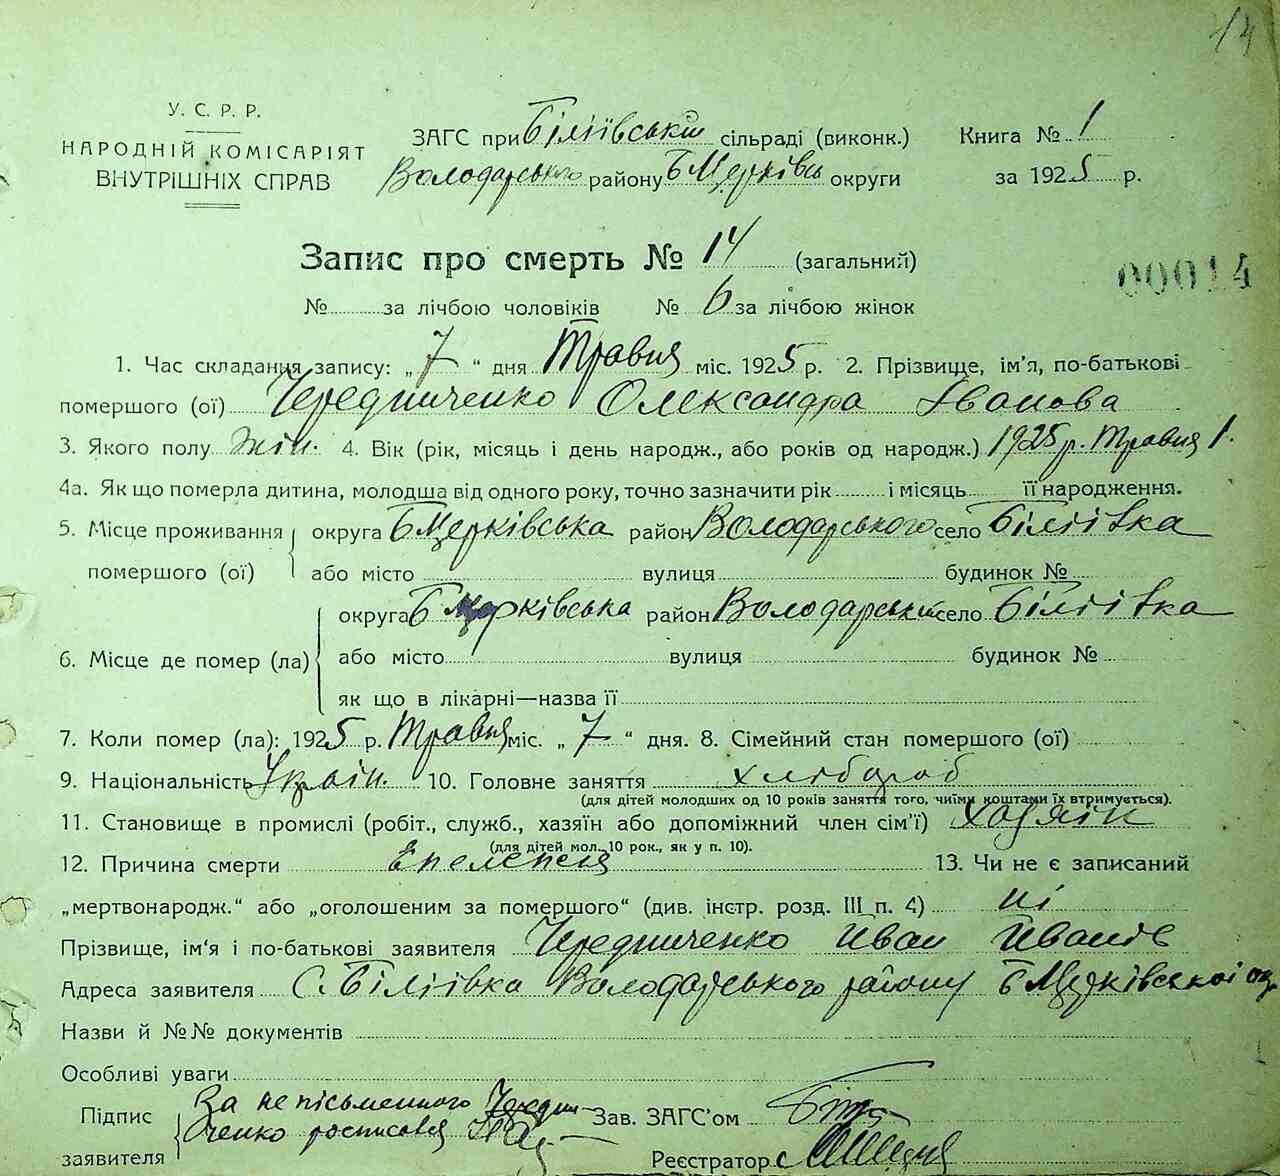 14
У. С. Р. Р.
НАРОДНІЙ КОМІСАРІЯТ
ВНУТРІШНІХ СПРАВ
ЗАГС при Біліївській сільраді (виконк.)
Володарського району БЦерківсь округи
Книга № 1
за 1925 р.
Запис про смерть № 14 (загальний)
00014
№ за лічбою чоловіків № 6 за лічбою жінок
1. Час складання запису: „7“ дня Травня міс. 1925 р. 2. Прізвище, ім'я, по-батькові
помершого (ої) Чередниченко Олександра Іванова
3. Якого полу Жін. 4. Вік (рік, місяць і день народж., або років од народж.) 1925 р. Травня 1.
4а. Як що померла дитина, молодша від одного року, точно зазначити рік і місяць її народження.
5. Місце проживання округа БЦерківська район Володарського село Біліївка
помершого (ої) або місто вулиця будинок №
округа БЦерківська район Володарський село Біліївка
6. Місце де помер (ла) або місто вулиця будинок №
як що в лікарні—назва її
7. Коли помер (ла): 1925 р. Травня міс. „7“ дня. 8. Сімейний стан помершого (ої)
9. Національність Україн. 10. Головне заняття хлібороб
(для дітей молодших од 10 років заняття того, чиїми коштами їх втримується).
11. Становище в промислі (робіт., служб., хазяїн або допоміжний член сім'ї) хазяїн
(для дітей мол. 10 рок., як у п. 10).
12. Причина смерти Епелепсія 13. Чи не є записаний
„мертвонародж.“ або „оголошеним за помершого“ (див. інстр. розд. III п. 4) ні
Прізвище, ім'я і по-батькові заявителя Чередниченко Иван Иванів
Адреса заявителя С. Біліївка Володарського району БЦерківської ок.
Назви й №№ документів
Особливі уваги
Підпис За не письменного Чередни-
ченко росписався
заявителя
Зав. ЗАГС'ом
Реєстратор